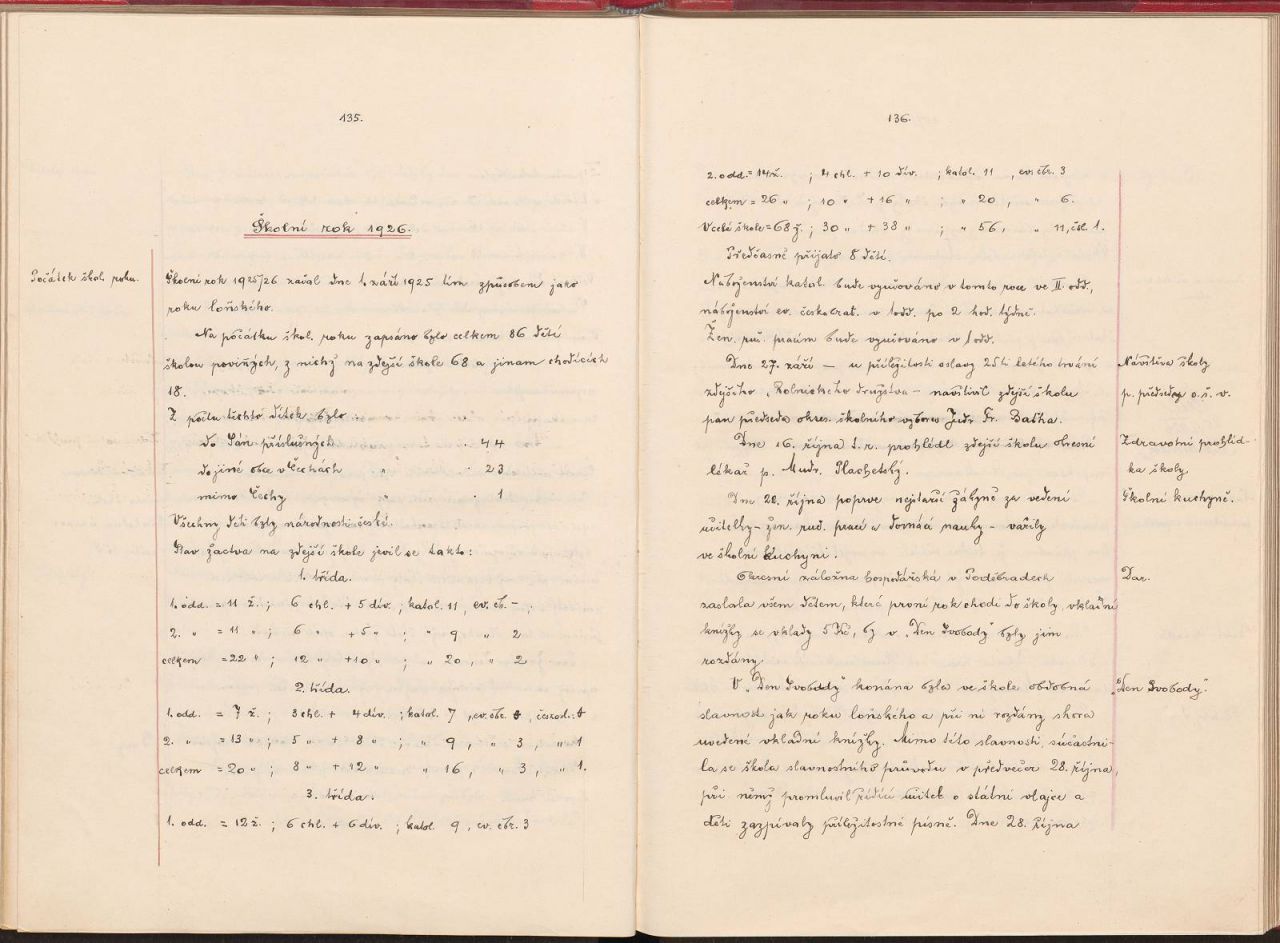 135.
Školní rok 1926.
Počátek škol. roku.
Školní rok 1925/26 začal dne 1. září 1925 tím způsobem jako
roku loňského.
Na počátku škol. roku zapsáno bylo celkem 86 dětí
školou povinných, z nichž na zdejší škole 68 a jinam chodících
18.
Z počtu těchto dítek bylo
do Sán příslušných . 44
do jiné obce v Čechách " . 23
mimo Čechy " . 1
Všechny děti byly národnosti české.
Stav žactva na zdejší škole jevil se takto:
1. třída.
1. odd. = 11 ž. ; 6 chl. + 5 dív. ; katol. 11, ev. čb. - ;
2. " = 11 " ; 6 " + 5 " ; " 9, " 2
celkem = 22 " ; 12 " + 10 " ; " 20, " 2
2. třída.
1. odd. = 7 ž. ; 3 chl. + 4 dív. ; katol. 7, ev. čbr.
2. " = 13 " ; 5 " + 8 " ; " 9, " 3, " 1
celkem = 20 " ; 8 " + 12 " " 16, " 3, " 1.
3. třída.
1. odd. = 12 ž. ; 6 chl. + 6 dív. ; katol. 9, ev. čbr. 3
136.
2. odd. = 14 ž. ; 4 chl. + 10 dív. ; katol. 11, ev. čbr. 3
celkem = 26 " ; 10 " + 16 " ; " 20, " 6.
V celé škole = 68 ž. ; 30 " + 38 " ; " 56, " 11, čsl. 1.
Předčasně přijato 8 dětí.
Náboženství katol. bude vyučováno v tomto roce ve II odd.,
náboženství ev. českobrat. v 1 odd. po 2 hod. týdně.
Žen. ruč. pracím bude vyučováno v 1 odd.
Dne 27. září – u příležitosti oslavy 25ti letého trvání
zdejšího "Rolnického družstva" – navštívil zdejší školu
pan předseda okres. školního výboru Judr Fr. Bačha.
Návštěva školy
p. předsedy o. š. v.
Dne 16. října t. r. prohlédl zdejší školu obvodní
lékař p. Mudr. Plachetský.
Zdravotní prohlíd-
ka školy.
Dne 20. října poprve nejstarší žákyně za vedení
učitelky – žen. ruč. prací a domácí nauky – vařily
ve školní kuchyni.
Školní kuchyně.
Okresní záložna hospodářská v Poděbradech
zaslala všem dětem, které první rok chodí do školy, vkladní
knížky se vklady 5 Kč, by v "Den Svobody" byly jim
rozdány.
Dar.
V "Den Svobody" konána byla ve škole obdobná
slavnost jak roku loňského a při ní rozdány shora
uvedené vkladní knížky. Mimo této slavnosti, súčastni-
la se škola slavnostního průvodu v předvečer 28. října,
při němž promluvil řídící učitel o státní vlajce a
děti zazpívaly příležitostné písně. Dne 28. října
"Den Svobody".